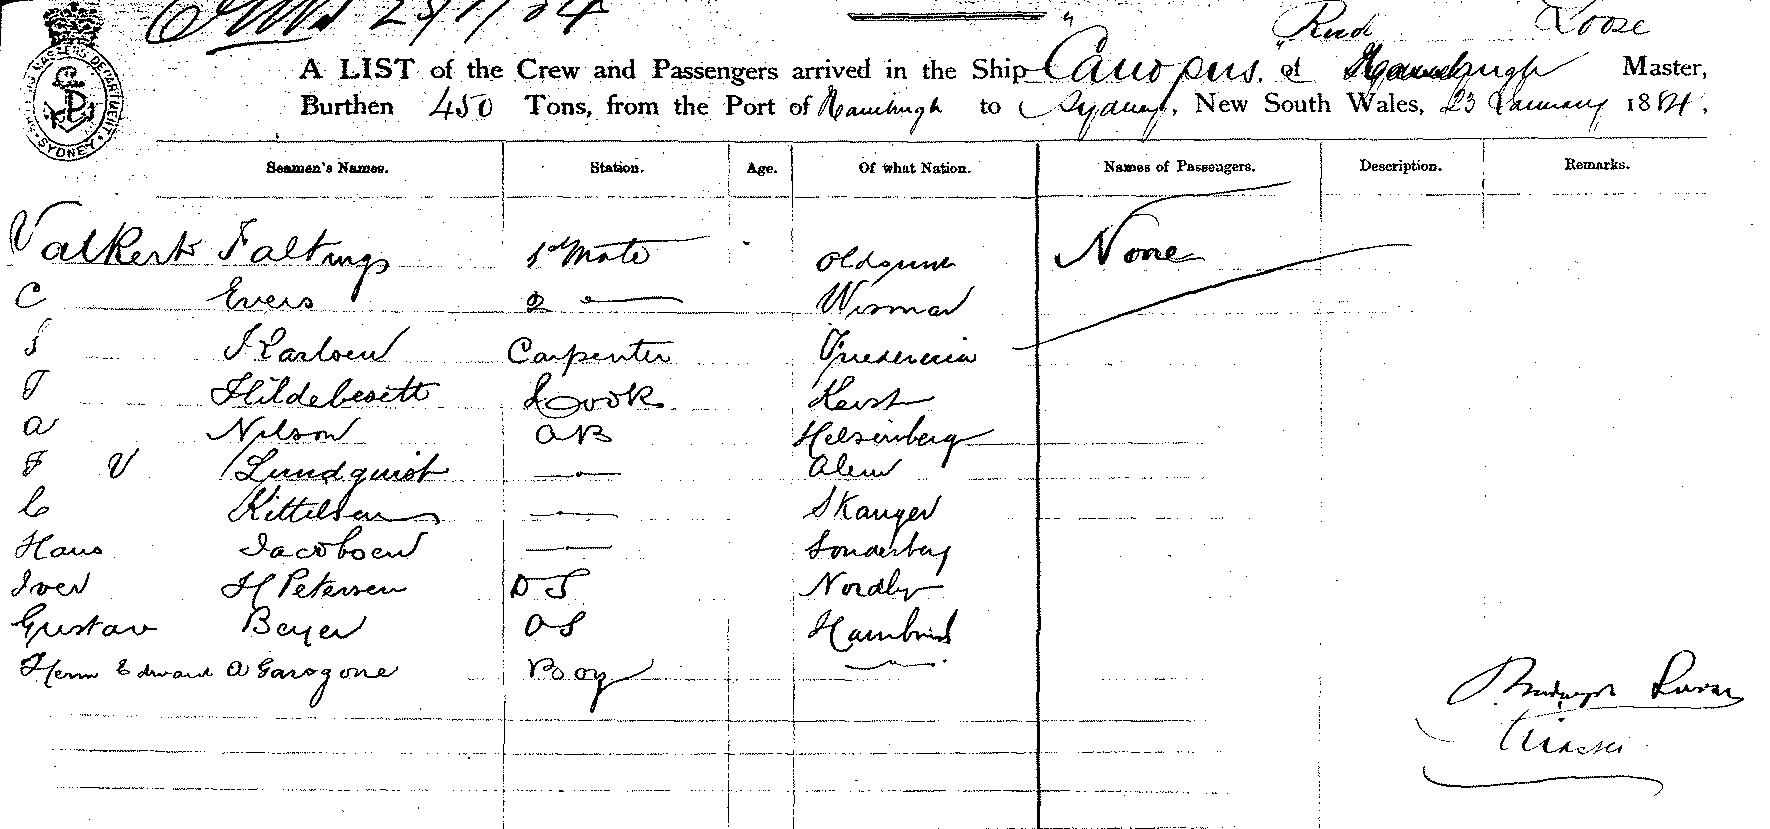 23/1/84
Rud Loose
A LIST of the Crew and Passengers arrived in the Ship Canopus, of Master,
Burthen 450 Tons, from the Port of Hamburgh to Sydney, New South Wales, 23 January 1884.
SYDNEY
Seamen's Names. Station. Age. Of what Nation. Names of Passengers. Description. Remarks.
Valkert Faltings 1st Mate Oldsum None
C Evers 2 — Wismar
S I Karlsen Carpenter Fredericia
T Cook
A Nilson AB Helsenberg
F V Lundquist — Alem
C Kittelsen — Skanger
Hans Jacobsen — Sonderberg
Iver H Petersen OS Nordby
Gustav Beyer OS
Herm Edward A Garogone Boy —